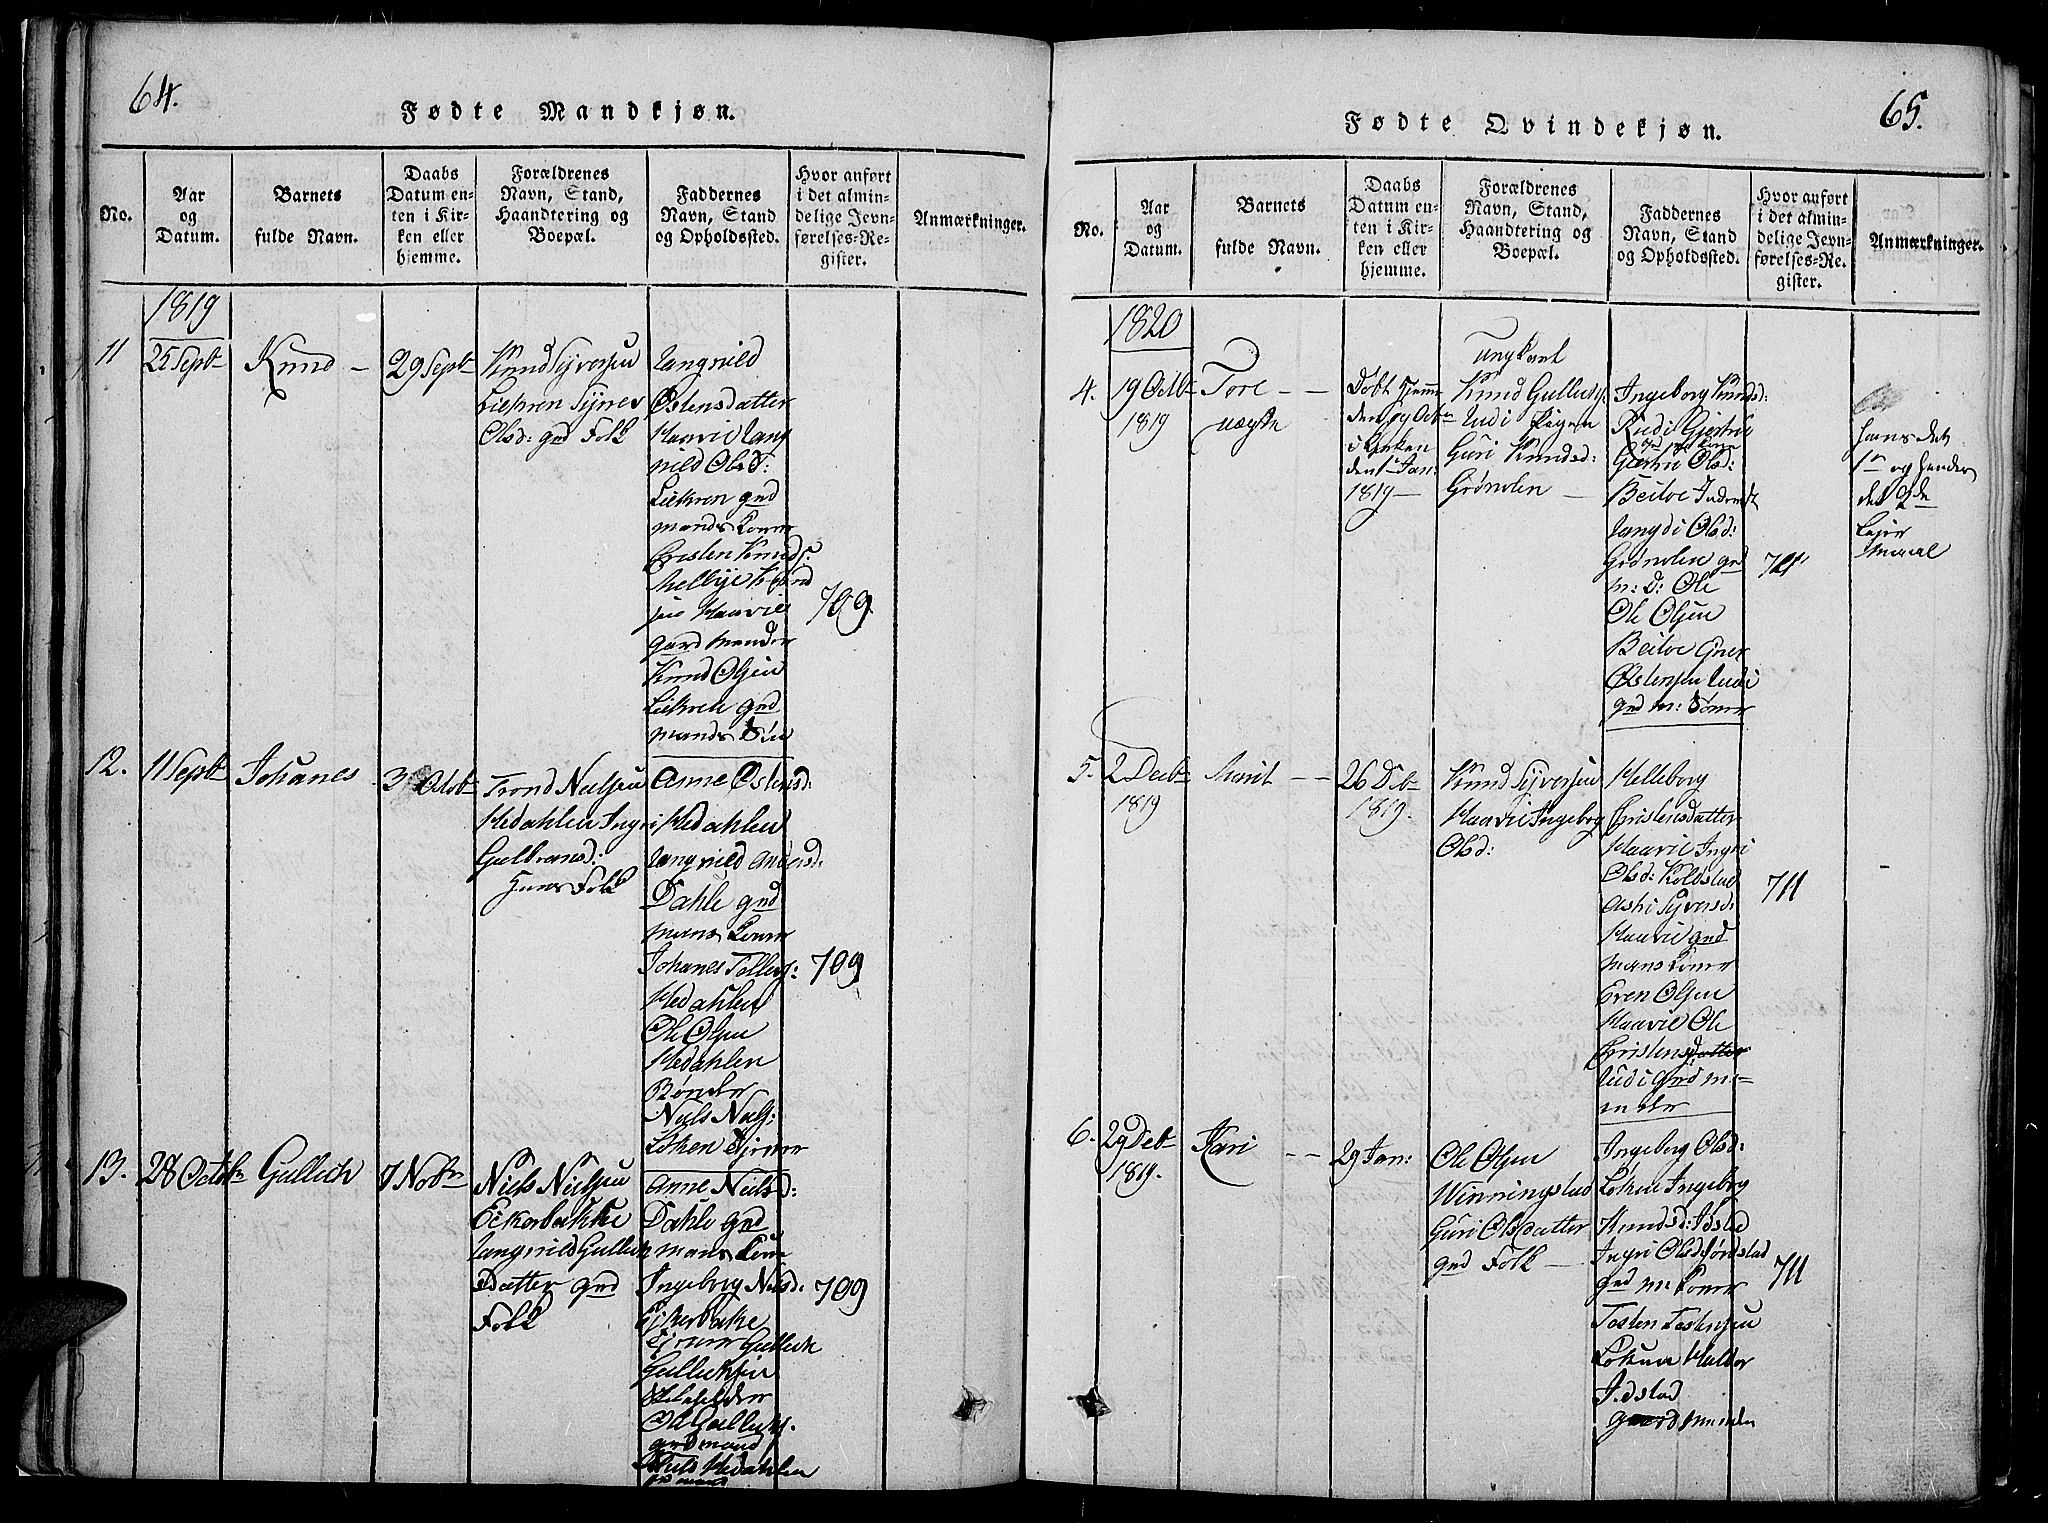 64.
Fødte Mandkjøn.
No.
Aar
og
Datum.
Barnets
fulde Navn.
Daabs
Datum en-
ten i Kir-
ken eller
hjemme.
Forældrenes
Navn, Stand,
Haandtering og
Boepæl.
Faddernes
Navn, Stand
og Opholdssted.
Hvor anført
i det almin-
delige Jevn-
førelses-Re-
gister.
Anmærkninger.
1819
11
25 Sept
Knud
29 Sept
Knud Syversen
Liekren Synes
Olsd: grd Folk
Langrild
Østensdatter
Haavie Lang
rild Olsd:
Liekren grd
mands Koner
Cristen Knuds:
Melbye
Haavies
gard mænder
Knud Olsen
Liekren grd
mands Søn
709.
12.
11 Sept
Johanes
3 Octob
Trond Neelsen
Medahlen Ingri
Gulbransd:
Huus Folk
Anne Østensd:
Medahlen
Langrild Andersd:
Dahle grd
mans Koner
Johanes Tollefs:
Medahlen
Ole Olsen
Medahlen
Bønder
Neels Neels:
Løken Tjener
709
13.
28 Octobr
Gullech
7 Nobr
Niels Nielsen
Eckerbakke
Langrild Gullech
Datter grd
Folk
Anne Neilsd:
Dahle grd
mans Kone
Ingeborg Nelsd:
Ekerbake
Tjener Gullech
Gullecksen
Ole Gulleks.
grdmand
Niels Medahlen
709
65.
Fødte Qvindekjøn.
No.
Aar
og
Datum.
Barnets
fulde Navn.
Daabs
Datum en-
ten i Kir-
ken eller
hjemme.
Forældrenes
Navn, Stand,
Haandtering og
Boepæl.
Faddernes
Navn, Stand
og Opholdssted.
Hvor anført
i det almin-
delige Jevn-
førelses-Re-
gister.
Anmærkninger.
1820
4.
19 Octb
1819
Tore
uægte
Døbt hjemme
den 19 Octbr
i Kirken
den 1 Jan:
1819
Ungkarl
Knud Gulleks:
Rudi Pigen
Guri Knudsd:
Grønolen
Ingeborg Knudsd:
Rudi Giertru
Giertru Olsd:
Beitoe
Langdi Olsd:
Grønolen grd
m: D: Ole
Ole Olsen
Beitoe
Østensen Rudi
grd m: Sønner
711
hans det
1ste og hendes
det 2de
Leier
maal
5.
2 Decb
1819
Marit
26 Deb
1819.
Knud Syversen
Haavie Ingeborg
Olsd:
Helleborg
Cristensdatter
Haavie Ingri
Olsd: Kolstad
Astri Syversd:
Haavie grd
mans Koner
Even Olsen
Haavie Ole
Cristensdatter
Rudi grd me-
nder
711
6.
29 Deb
1819.
Kari
29 Jan:
Ole Olsen
Winningstad
Guri Olsdatter
grd Folk
Ingeborg Olsd:
Løken Ingeborg
Knudsd: Jdstad
Ingri Olsd: Jordstad
grd m: Koner
Tosten Tostensen
Løken Haldor
Jdstad
gaardmænder
711